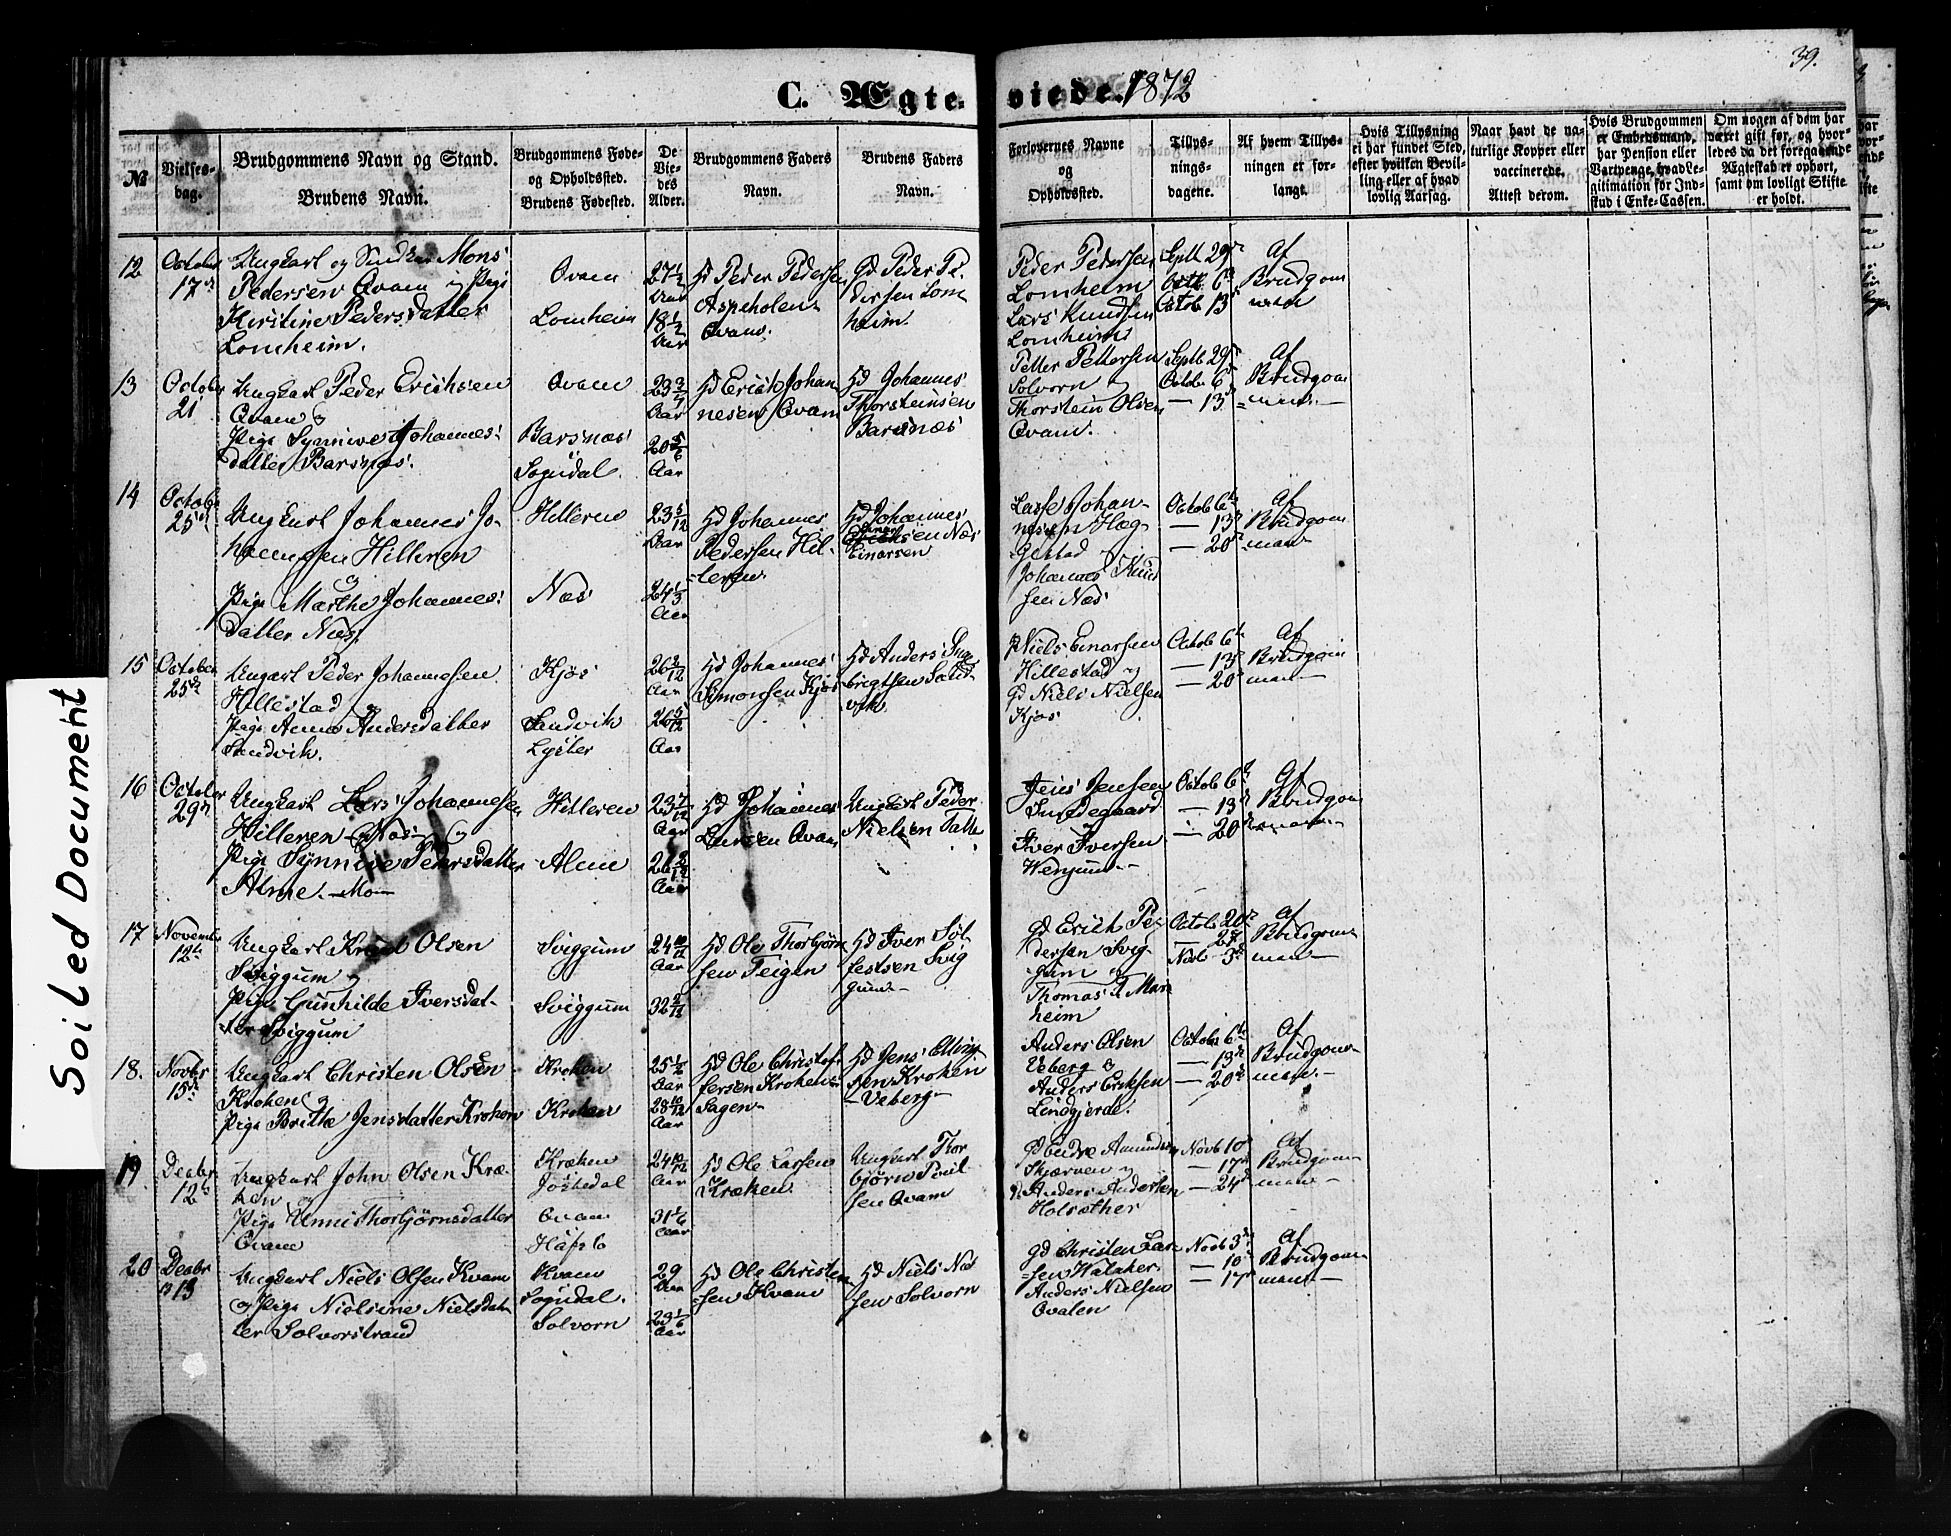 39.
C. Ægteviede. 1872
№
Vielsesdag.
Brudgommens Navn og Stand.
Brudens Navn.
Brudgommens Føde-
og Opholdssted.
Brudens Fødested.
De
Vie-
des
Alder.
Brudgommens Faders
Navn.
Brudens Faders
Navn.
Forlovernes Navne
og
Opholdssted.
Tillys-
nings-
dagene.
Af hvem Tillys-
ningen er for-
langt.
Hvis Tillysning
ei har fundet Sted,
efter hvilken Bevil-
ling eller af hvad
lovlig Aarsag.
Naar havt de na-
turlige Kopper eller
vaccinerede.
Attest derom.
Hvis Brudgommen
er Embedsmand,
har Pension eller
Vartpenge, hvad Le-
gitimation for Ind-
skud i Enke-Cassen.
Om nogen af dem har
været gift før, og hvor-
ledes da det foregaaende
Ægteskab er ophørt,
samt om lovligt Skifte
er holdt.
Soiled Document
12
October
17
Ungkarl og Mons
Pedersen Qvam og Pige
Kirstine Pedersdatter
Lomheim.
Qvam
Lomheim
27½
Aar
18½
Aar
Peder Pedersen
Aspeholen
Qvam.
Gd Peder Pe
dersen Lom
heim.
Peder Pedersen
Lomheim
Lars Knudsen
Lomheim
Septb 29
Octb 6
Octob 13
Af
Brudgom
men
13
October
21
Ungkarl Peder Erichsen
Qvam og
Pige Synneve Johannes
datter Barsnæs.
Qvam
Barsnæs
Sogndal.
23
Aar
20 5/6
Aar
Erich Johan
nesen Qvam
Johannes
Thorsteinsen
Barsnæs
Petter Pettersen
Solvorn og
Thorstein Olsen
Qvam.
Septb 29
Octobr 6
— 13
Af
Brudgom
men —
14
October
25
Ungkarl Johannes Jo-
hannessen Hilleren
og
Pige Marthe Johannes
datter Næs.
Hilleren
Næs
23 5/12
Aar
24⅓
Aar
Johannes
Pedersen Hil-
leren.
Johannes
Næs
Einarsen
Lasse Johan-
nessen Hæg-
gestad
Johannes Knud
sen Næs
Octob 6
— 13
— 20
Af
Brudgom
men
15
October
25
Ungkarl Peder Johannesen
Hillestad og
Pige Anna Andersdatter
Sandvik.
Kjos
Sandvik
Lyster
26 2/12
Aar
26 5/12
Aar
Johannes
Simonsen Kjos
Anders Inge
brigtsen Sand
vik
Niels Einarsen
Hillestad og
Gd Niels Nielsen
Kjos
Octob 6
— 13
— 20
Af
Brudgom
men —
16
October
29
Ungkarl Lars Johannesen
Hilleren og
Pige Synneve Pedersdatter
Alme. —Mo—
Hilleren
Alme
23 7/12
Aar
26
Aar
Johannes
Larsen Qvam
Ungkarl Peder
Nielsen
Jens Jensen
og
Iver Iversen
Wenjum —
Octob 6
— 13
— 20
Af
Brudgom
men
17
November
12
Ungkarl Olsen
Sviggum og
Pige Gunhilde Iversdat-
ter Sviggum
Sviggum
Sviggum
24 10/12
Aar
32 2/12
Ole Thorbjørn
sen Teigen
Iver Sol
festsen Svig
gum —
Gd Erich Pe-
dersen Svig-
gum og
Thomas Mar
heim
Octob 20
— 27
Novb 3
Af
Brudgom
men —
18.
Novbr
15
Ungkarl Christen Olsen
Kroken og
Pige Brithe Jensdatter Kroken
Kroken
Kroken
25½
Aar
28 10/12
Aar
Ole Christof
fersen Kroken
Hagen
Jens
sen Kroken
— Veberg
Anders Olsen
Veberg &
Anders Eriksen
Lindgjerde.
Octob 6
— 13
— 20
Af
Brudgom
men. —
19.
Decbr
12
Ungkarl John Olsen Kræ-
ken og
Pige Unni Thorbjørnsdatter
Qvam
Kræken
Jostedal
Qvam
Hafslo
24 10/12
Aar
31 1/6
Aar
Ole Larsen
Kræken
Ungkarl Thor
bjørn Poul
sen Qvam
Gd Endre Amundsen
Skjærven og
Anders Andersen
Holsether
Novb 10
— 17
— 24
Af
Brudgom
men —
20
Decbr
13
Ungkarl Niels Olsen Kvam
og Pige Nielsine Nielsdat-
ter Solvorstrand
Kvam
Sogndal.
Solvorn
29
Aar
29 1/6
Aar
Ole Christen
sen Kvam
Niels Niel
sen Solvorn
Gd Christen Lar-
sen Walaker
Anders Nielsen
Qvalen
Novb 3
— 10
— 17
Af
Brudgom
men —